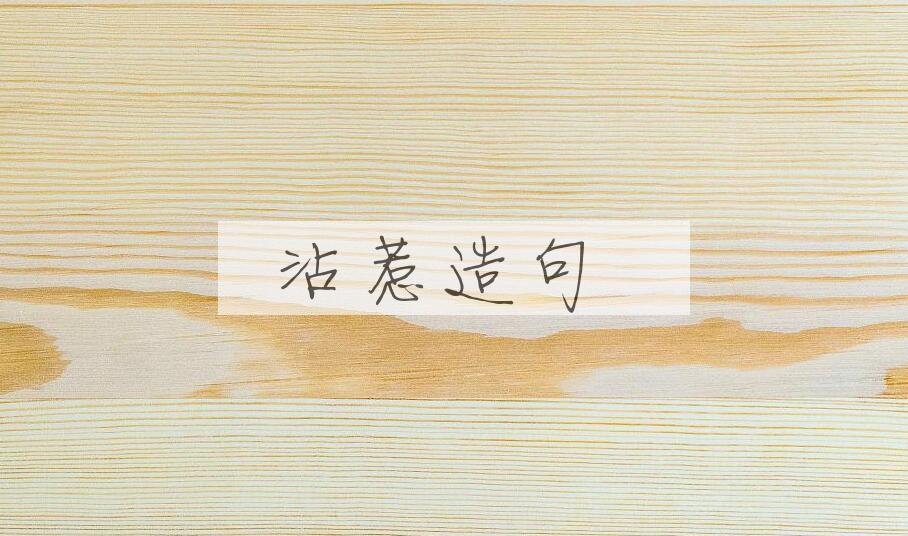 沾惹造句